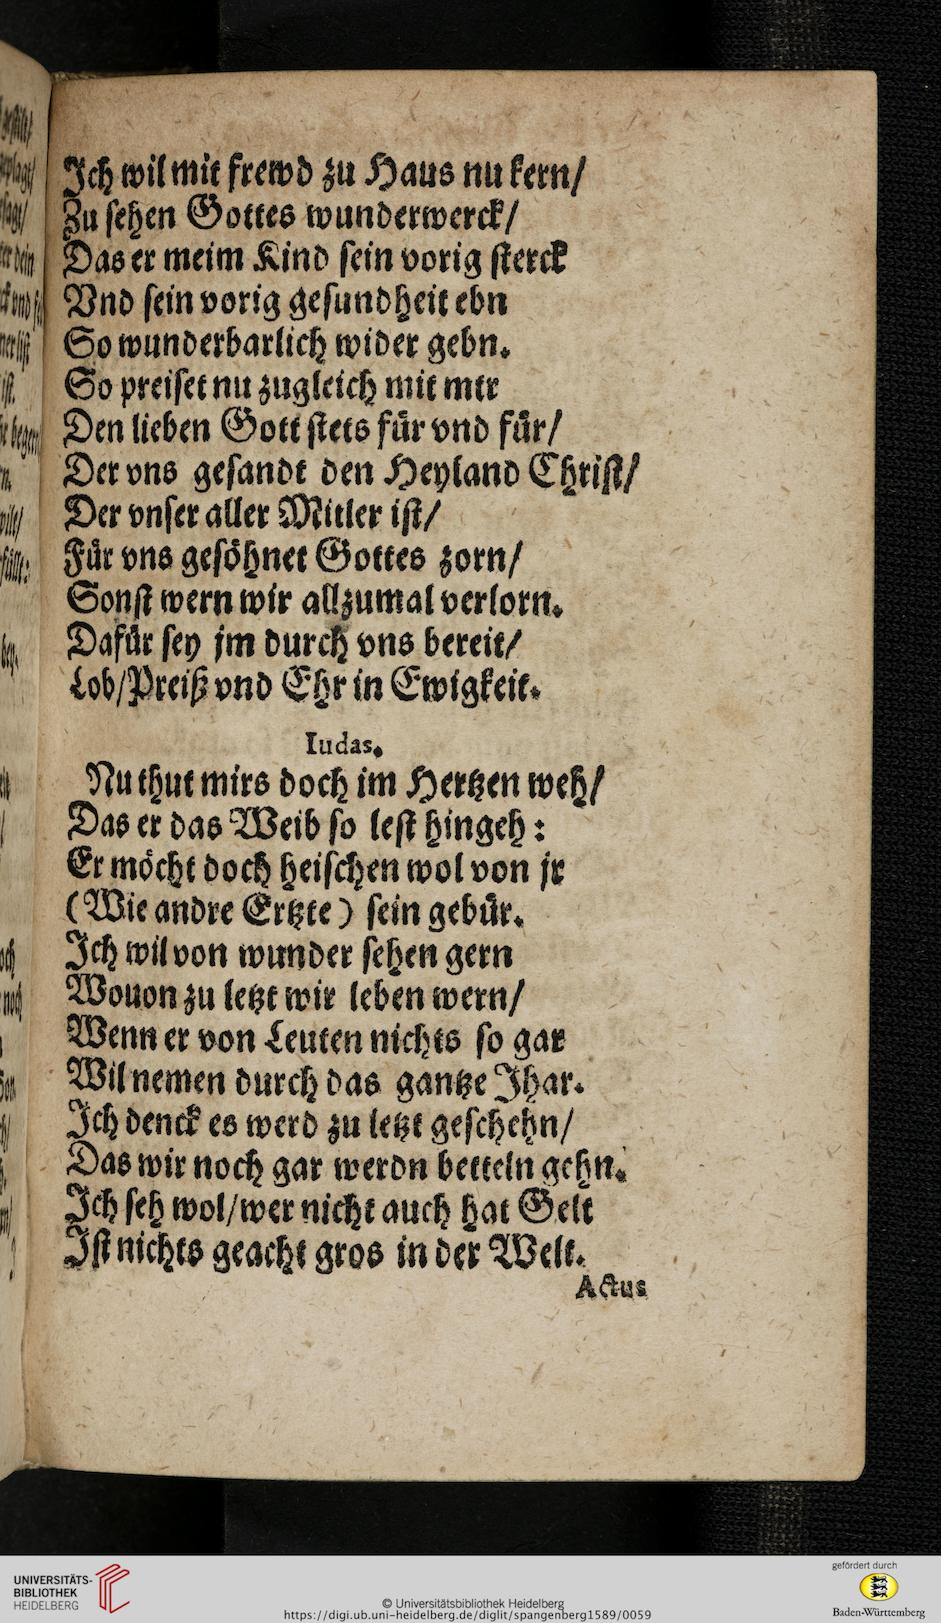 Ich wil mit frewd zu Haus nu kern/
Zu sehen Gottes wunderwerck/
Das er meim Kind sein vorig sterck
Vnd sein vorig gesundheit ebn
So wunderbarlich wider gebn.
So preiset nu zugleich mit mir
Den lieben Gott stets für vnd für/
Der vns gesandt den Heyland Christ/
Der vnser aller Mitler ist/
Für vns gesöhnet Gottes zorn/
Sonst wern wir allzumal verlorn.
Dafür sey jm durch vns bereit/
Lob/Preiß vnd Ehr in Ewigkeit.
Iudas.
Nu thut mirs doch im Hertzen weh/
Das er das Weib so lest hingeh:
Er möcht doch heischen wol von jr
(Wie andre Ertzte) sein gebür.
Ich wil von wunder sehen gern
Wouon zu letzt wir leben wern/
Wenn er von Leuten nichts so gar
Wil nemen durch das gantze Jhar.
Ich denck es werd zu letzt geschehn/
Das wir noch gar werdn betteln gehn.
Ich seh wol/wer nicht auch hat Gelt
Ist nichts geacht gros in der Welt.
Actus
UNIVERSITÄTS-
BIBLIOTHEK
HEIDELBERG
© Universitätsbibliothek Heidelberg
https://digi.ub.uni-heidelberg.de/diglit/spangenberg1589/0059
gefördert durch
Baden-Württemberg